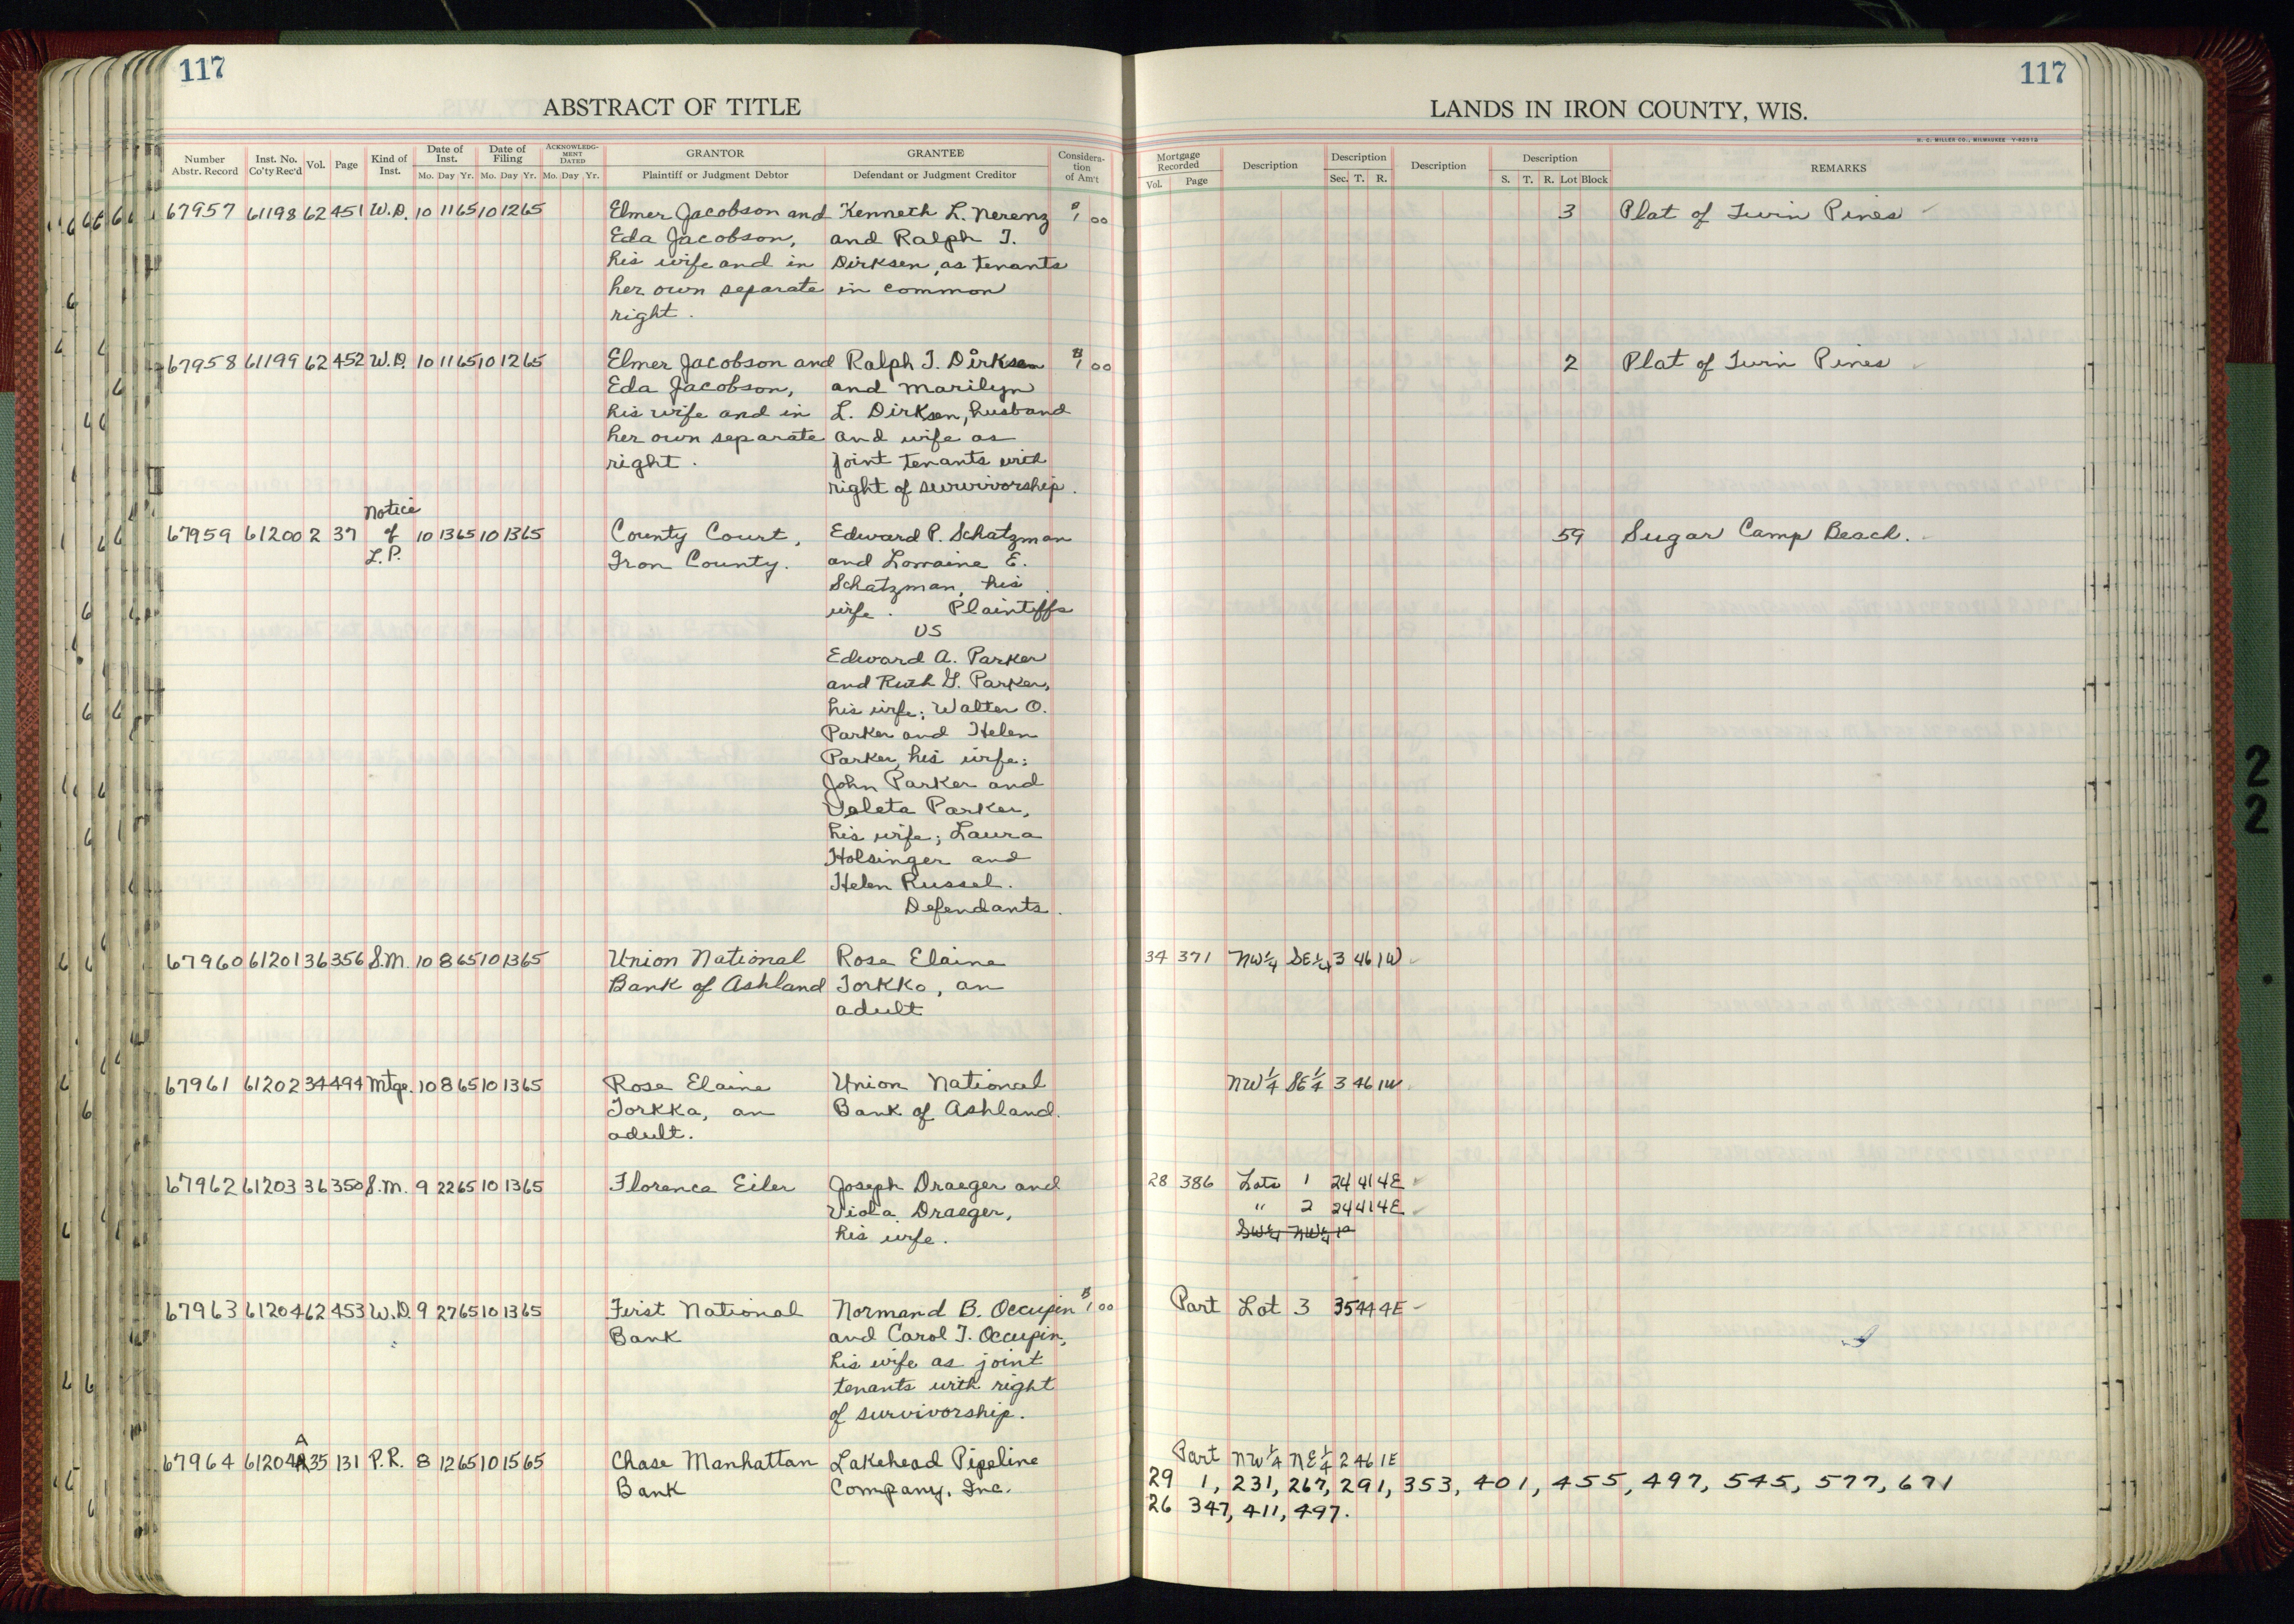 117
ABSTRACT OF TITLE
Number Abstr. Record Inst. No. Co'ty Rec'd Vol. Page Kind of Inst. Date of Inst. Mo. Day Yr. Date of Filing Mo. Day Yr. ACKNOWLEDGMENT DATED Mo. Day Yr. GRANTOR Plaintiff or Judgment Debtor GRANTEE Defendant or Judgment Creditor Consideration of Am't
67957 61198 62 451 W.D. 10 11 65 10 12 65 Elmer Jacobson and Kenneth L. Nerenz $1 00
Eda Jacobson, and Ralph T.
his wife and in Dirksen, as tenants
her own separate in common
right.
67958 61199 62 452 W.D. 10 11 65 10 12 65 Elmer Jacobson and Ralph T. Dirksen $1 00
Eda Jacobson, and Marilyn
his wife and in L. Dirksen, husband
her own separate and wife as
right. joint tenants with
right of survivorship.
Notice
67959 61200 2 37 of 10 13 65 10 13 65 County Court, Edward P. Schatzman
L.P. Iron County. and Lorraine E.
Schatzman, his
wife. Plaintiffs
VS
Edward A. Parker
and Ruth G. Parker,
his wife; Walter O.
Parker and Helen
Parker, his wife;
John Parker and
Veleta Parker,
his wife; Laura
Holsinger and
Helen Russel.
Defendants.
67960 61201 36 356 S.M. 10 8 65 10 13 65 Union National Rose Elaine
Bank of Ashland Torkko, an
adult
67961 61202 34 494 Mtge. 10 8 65 10 13 65 Rose Elaine Union National
Torkka, an Bank of Ashland.
adult.
67962 61203 36 350 S.M. 9 22 65 10 13 65 Florence Eiler Joseph Draeger and
Viola Draeger,
his wife.
67963 61204 62 453 W.D. 9 27 65 10 13 65 First National Normand B. Occupin $1 00
Bank and Carol T. Occupin,
his wife as joint
tenants with right
of survivorship.
A
67964 61204 35 131 P.R. 8 12 65 10 15 65 Chase Manhattan Lakehead Pipeline
Bank Company, Inc.
117
LANDS IN IRON COUNTY, WIS.
H. C. MILLER CO., MILWAUKEE
Mortgage Recorded Vol. Page Description Description Sec. T. R. Description Description S. T. R. Lot Block REMARKS
3 Plat of Twin Pines
2 Plat of Twin Pines
59 Sugar Camp Beach.
34 371 NW¼ SE¼ 3 46 1W
NW¼ SE¼ 3 46 1W
28 386 Lots 1 24 41 4E
" 2 24 41 4E
SW¼ NW¼
Part Lot 3 35 44 4E
Part NW¼ NE¼ 2 46 1E
29 1, 231, 267, 291, 353, 401, 455, 497, 545, 577, 671
26 347, 411, 497.
2
2